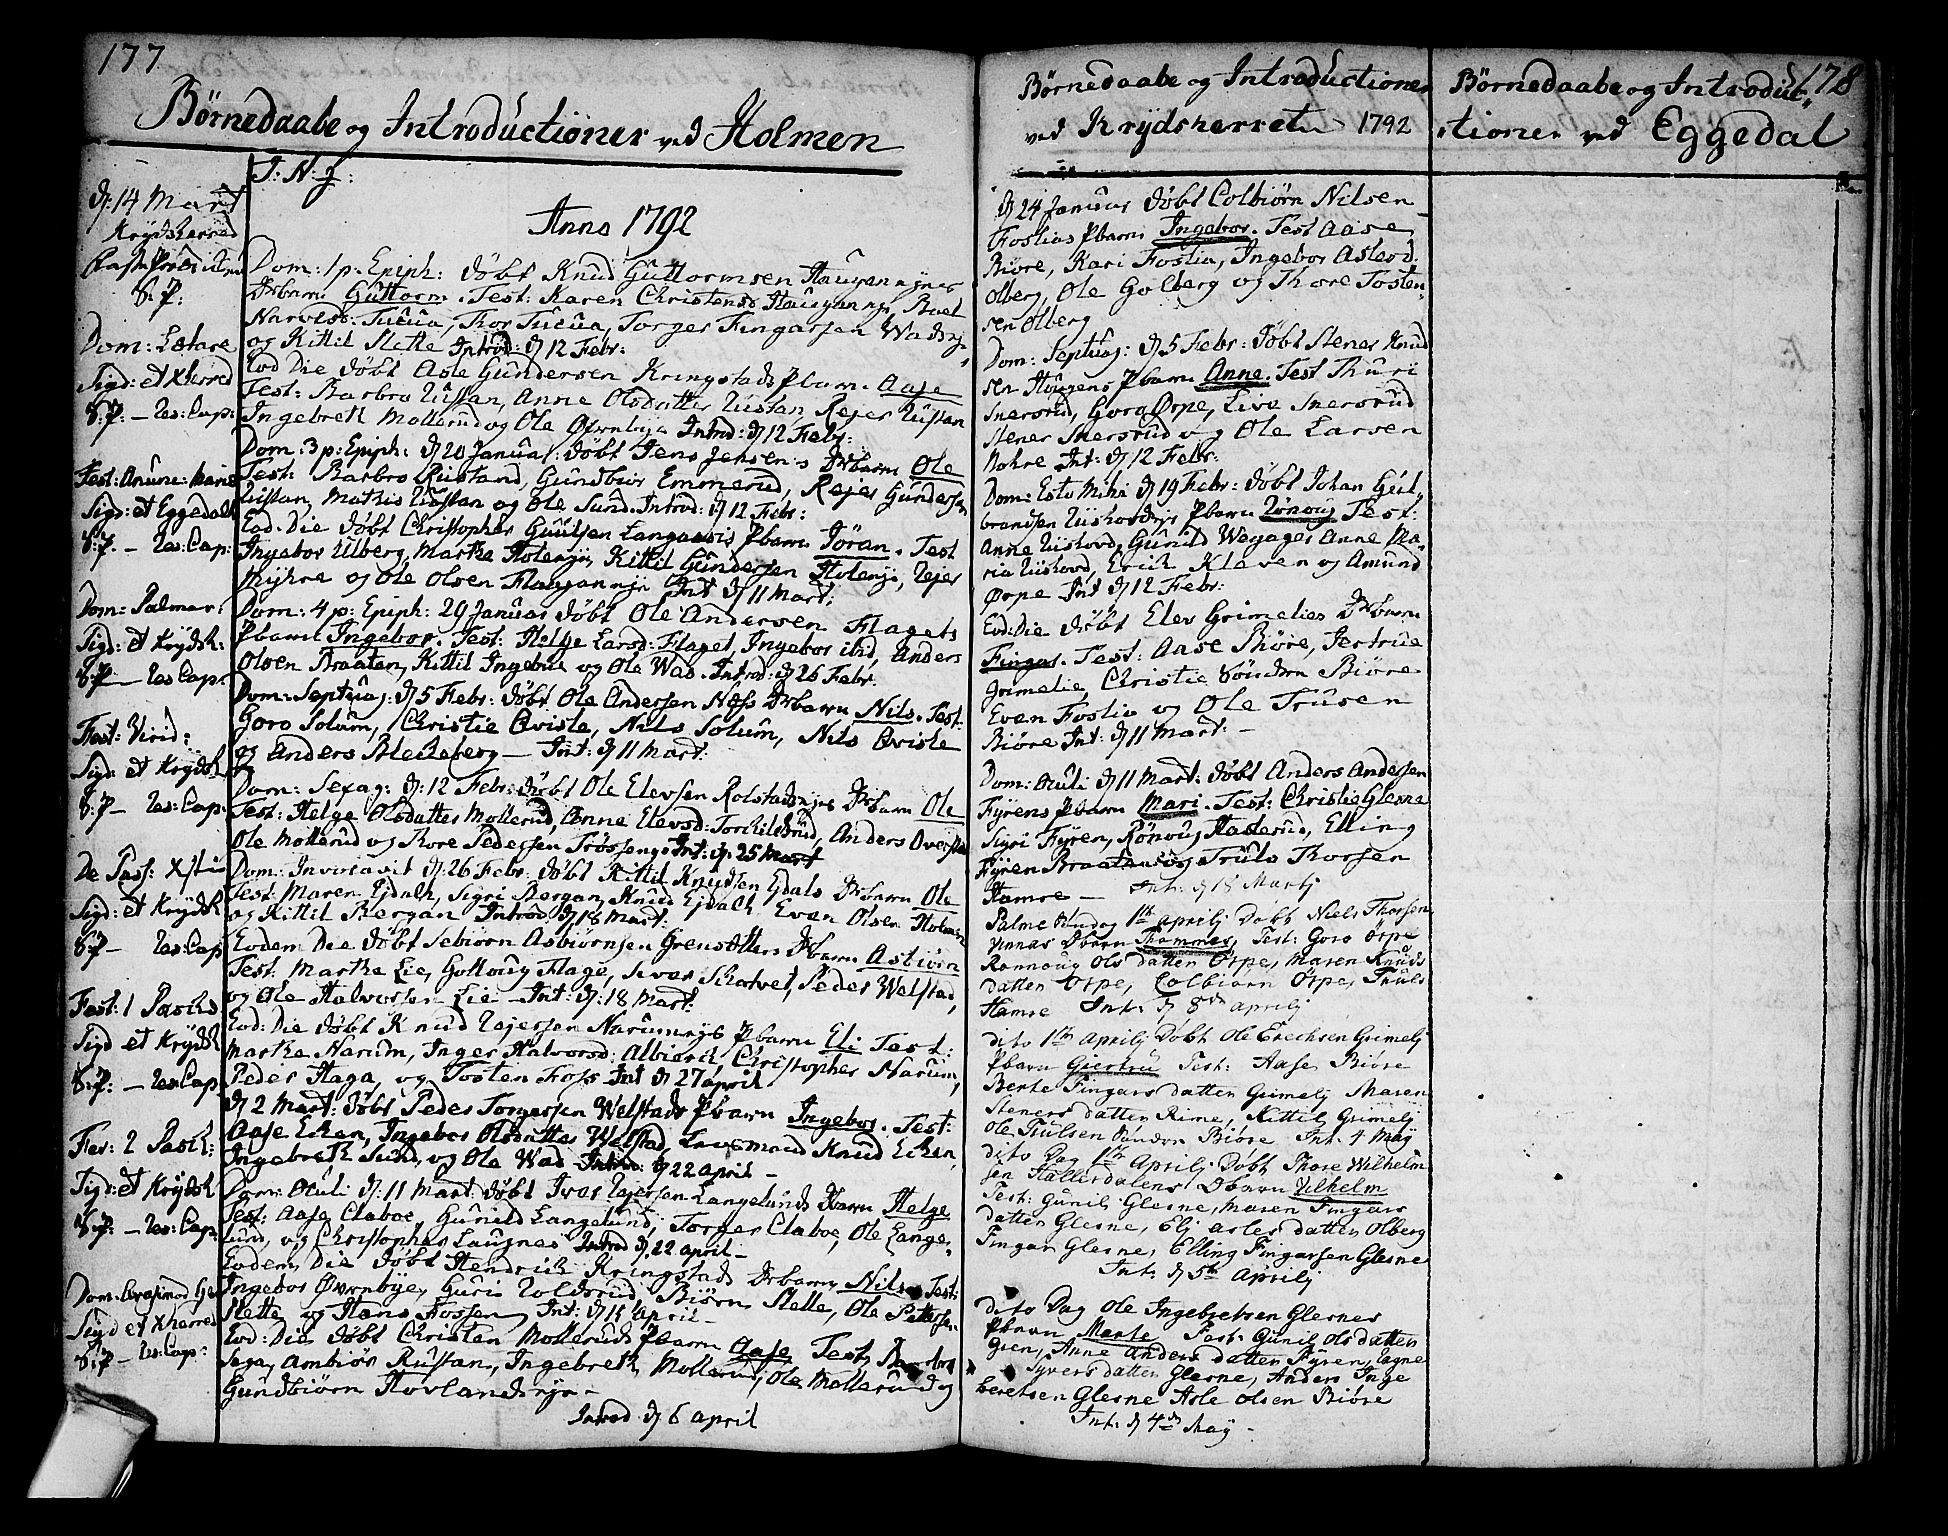 177
Børnedaabe og Introductioner ved Holmen
J: N: J:
Anno 1792
d: 14 Mart
Krydsherred
S: P:
Dom: Lætare
Sigd: et Xherred
S: P: — Res: Cap:
Fest: Anunc: Mariæ
Sigd: et Eggedahl
S: P. — Res: Cap:
Dom: Palmar:
Sigd: et Krydsh:
S: P — Res Cap:
Fest: Virid:
Sigd: et Krydsh
S: P — Res: Cap:
De Pass: Xsti
Sigd: et Krydsh
S: P — Res: Cap
Fest: 1 Pasch
Sigd et Krydsh
S: P: — Res: Cap
Fer: 2 Pasch:
Sigd: et Krydsh
S: P: — Res: Cap:
Dom: Qvasimod Ge:
Sigd et Xherred
S: P — Res: Cap:
Dom: 1 p: Epiph: døbt Knud Guttormsen Haugannejes
Drbarn Guttorm. Test: Karen Christensd Haugannej, Boel
Narvesd: Tucua, Thor Tucua, Torger Fingarsen Wadsej
og Kittil Slette Introd: d 12 Febr:
Eod Die døbt Asle Gundersen Kringstads Pbarn Aase
Test: Barbro Rustan, Anne Olsdatter Rustan, Rejer Rustan
Ingebreth Mollerud og Ole Øvernbye Introd: d 12 Febr:
Dom: 3 p: Epiph: d 20 Januar: døbt Jens Jensen's Drbarn Ole
Test: Barbro Rustand, Gundbiør Emmerud, Rejer Gundersen
Rustan, Mathis Rustan og Ole Sund. Introd: d 12 Febr:
Eod: Die døbt Christopher Guulsen Langaaris Pbarn Jøran. Test
Ingebor Ulberg, Marthe Holenej, Kittil Gundersen Holenej, Rejer
Myhre og Ole Olsen Flagannej Int d 11 Mart:
Dom: 4 p: Epiph: 29 Januar døbt Ole Andersen Flagets
Pbarn Ingebor. Test: Helge Larsd: Flaget, Ingebor ibid, Anders
Olsen Braaten, Kittil Ingebue og Ole Wad. Introd: d 26 Febr:
Dom: Septuag: d 5 Febr: døbt Ole Andersen Næss Drbarn Nils. Test:
Goro Solum, Christie Qvisle, Nils Solum, Nils Qvisle
og Anders Blekeberg — Int: d 11 Mart:
Dom: Sexag: d: 12 Febr: døbt Ole Elevsen Rolstadsejes Drbarn Ole
Test: Helge Olsdatter Mollerud, Anne Elevsd: Torchilsrud, Anders Overs
Ole Mollerud og Thore Pedersen Int: d: 25 Mart
Dom: Invocavit d: 26 Febr: døbt Kittil Knudsen Ejdals Drbarn Ole
Test: Maren Ejdahl, Sigri Bergan, Knud Ejdahl, Even Olsen Holmen
og Kittil Bergan Introd d 18 Mart:
Eodem Die døbt Sebiørn Asbiørnsen Grensætters Drbarn Asbiørn
Test: Marthe Lie, Gollaug Flage, Ivar Skatvet, Peder Welstad,
og Ole Halvorsen Lie — Int: d: 18 Mart:
Eod: Die døbt Knud Rejersen Narumejs Pbarn Eli Test:
Marthe Narum, Inger Halvorsd: Albierch, Christopher Narum,
Peder Haga, og Tosten Foss Int d 27 april
d 2 Mart: døbt Peder Torgersen Welstads Pbarn Ingebor. Test:
Aase Eken, Ingebor Olsdatter Welstad, Knud Eken,
Ingebreth Sund, og Ole Wad Introd: d 22 april —
Dom: Oculi d: 11 Mart: døbt Ivar Rejersen Langelunds Drbarn Helge
Test: Aase Claboe, Gunild Langelund, Torger Claboe, Ole Lange-
lund, og Christopher Laugnes Introd d, 22 april —
Eodem Die døbt Hendrich Kringstads Drbarn Nils. Test:
Ingebor Øvernbye, Guri Roldsrud, Biørn Slette, Ole Pettersen
Slette og Hans Fossen Int: d 15 April —
Eod: Die døbt Christen Mollerud's Pbarn Aase Test, Barbro
Saga, Ambiør Rustan, Ingebreth Mollerud, Ole Mollerud og
Gundbiørn Hovlandseje —
Introd d 6 april
Børnedaabe og Introductioner
ved Krydsherret 1792
d 24 Januar døbt Colbiørn Nilsen
Foslias Pbarn Ingebor. Test Aase
Biøre, Kari Foslia, Ingebor Aslesd:
Olberg, Ole Golberg og Thore Tosten-
sen Olberg
Dom: Septuag: d 5 Febr: døbt Stener Knud
sen Hougens Pbarn Anne. Test Thuri
Snersrud, Goro Ørpe, Live Snersrud
Stener Snersrud og Ole Larsen
Nohre Int: d 12 Febr:
Dom: Esto Mihi d 19 Febr: døbt Johan Gul-
brandsen Riishovdejs Pbarn Rønoug Test:
Anne Riishovd, Gunild Weyager Anne Ma-
ria Riishovd, Erich Klasen og Amund
Ørpe Int d 12 Febr:
Eod: Die døbt Elev Grimelies Drbarn
Fingar. Test: Aase Biøre, Jertrue
Grimelie, Christie Søndre Biøre
Even Foslie og Ole Trusen
Biøre Int: d 11 Mart: —
Dom: Oculi d 11 Mart: døbt Anders Andersen
Fyrens Pbarn Mari. Test: Christie Glesne
Sigri Fyren, Rønoug Hasterud, Elling
Fyren Braaten og Truls Thorsen
Hamre — Int: d 18 Martj
Palme Søndag 1ste Aprilj Døbt Niels Thorsen
Vinnas Dbarn Thommes, Test: Goro Ørpe
Rannoug Ols datten Ørpe, Maren Knuds
datten Ørpe, Colbiørn Ørpe, Thuls
Hamre Int. d 8de aprilj
dito 1te Aprilj Døbt Ole Erechsen Grimelj
Pbarn Giertru Test: Aase Biøre
Berte Fingars datten Grimelj Maren
Steners datten Rime, Kittil Grimelj
Ole Trulsen Søndre Biøre Int. 4 Maÿ
dito Dag 1te Aprilj Døbt Thore Wilhelm
sen Hallerdalens Dbarn Vilhelm
Test: Gunil Glesne, Maren Fingars
datten Glesne, Elj Asles datten Olberg
Fingar Glesne, Elling Fingarsen Glesne
Int. d 5te Aprilj
dito Dag Ole Ingebretsen Glesnes
Pbarn Merte Test: Gunil Olsdatten
Gren, Anne Anders datten Fyren, Eagne
Syvers datten Glesne, Anders Inge
bretsen Glesne Asle Olsen Biøre
Int. d 4de Maÿ —
178
Børnedaabe og Introduc-
tioner ved Eggedal